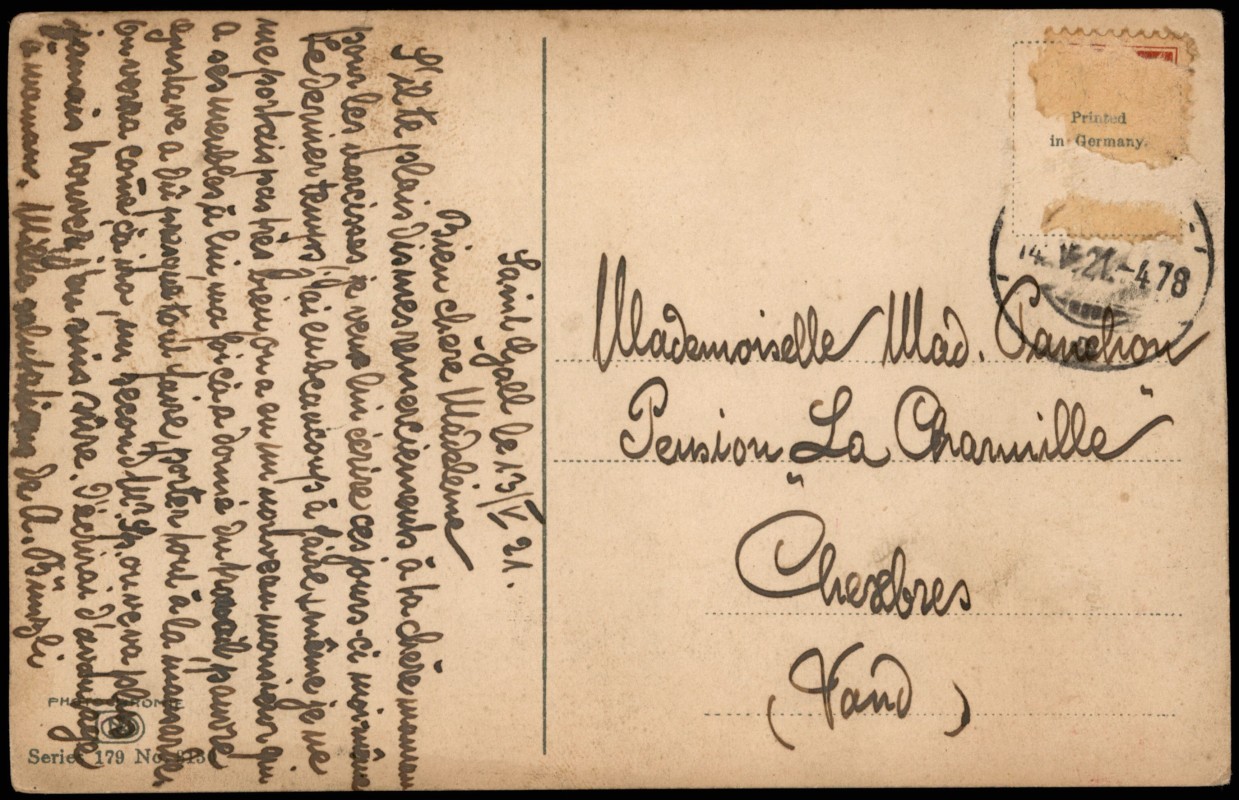 Saint Gall le 13/V 21.
Bien chère Madeleine
S'il te plais dis mes remerciements à ta chère maman
pour les narcisses, je veux lui écrire ces jours-ci moi-même
Le dernier temps j'ai eu beaucoup à faire, même je ne
me portais pas très bien, on a eu un nouveau monsieur qui
a ses meubles à lui ma foi ça a donné du travail, pauvre
Gustave a dû presque tout faire, porter tout à la mansarde,
on verra come ça ira, un second fürsp. on ne va plus
jamais trouver j'en suis sûre. J'écrirai d'avantage
à maman. Mille salutations de A. Bünzli
Mademoiselle Mad. Panchon
Pension "La Charmille"
Chexbres
(Vaud)
Printed
in Germany.
14. V. 21.-4 78
PHOTOCHROMIE
Serie 179 No.